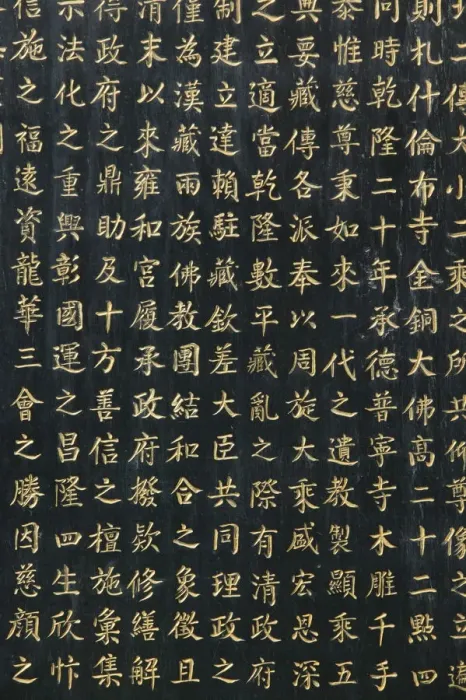 二傳大小二乘之所共仰尊像之並
則札什倫布寺金銅大佛高二十二點四
同時乾隆二十年承德普寧寺木雕千手
泰惟慈尊秉如來一代之遺教製顯乘五
典要藏傳各派奉以周旋大乘宏恩深
之立適當乾隆數平藏亂之際有清政府
制建立達賴駐藏欽差大臣共同理政之
僅為漢藏兩族佛教團結和合之象徵且
清末以來雍和宮履承政府撥欵修繕解
得政府之鼎助及十方善信之檀施彙集
示法化之重興彰國運之昌隆四生欣忭
信施之福遠資龍華三會之勝因慈顏之